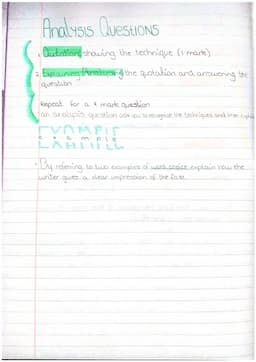 Analysis Questions
1. Quotation showing the technique (1 mark)
2. Explaining/Analysing the quotation and answering the
question
Repeat for a 4 mark question
an analysis question asks you to recognise the techniques and
EXAMPLE
By refering to two examples of word choice explain how the
writer gives a clear impression of the